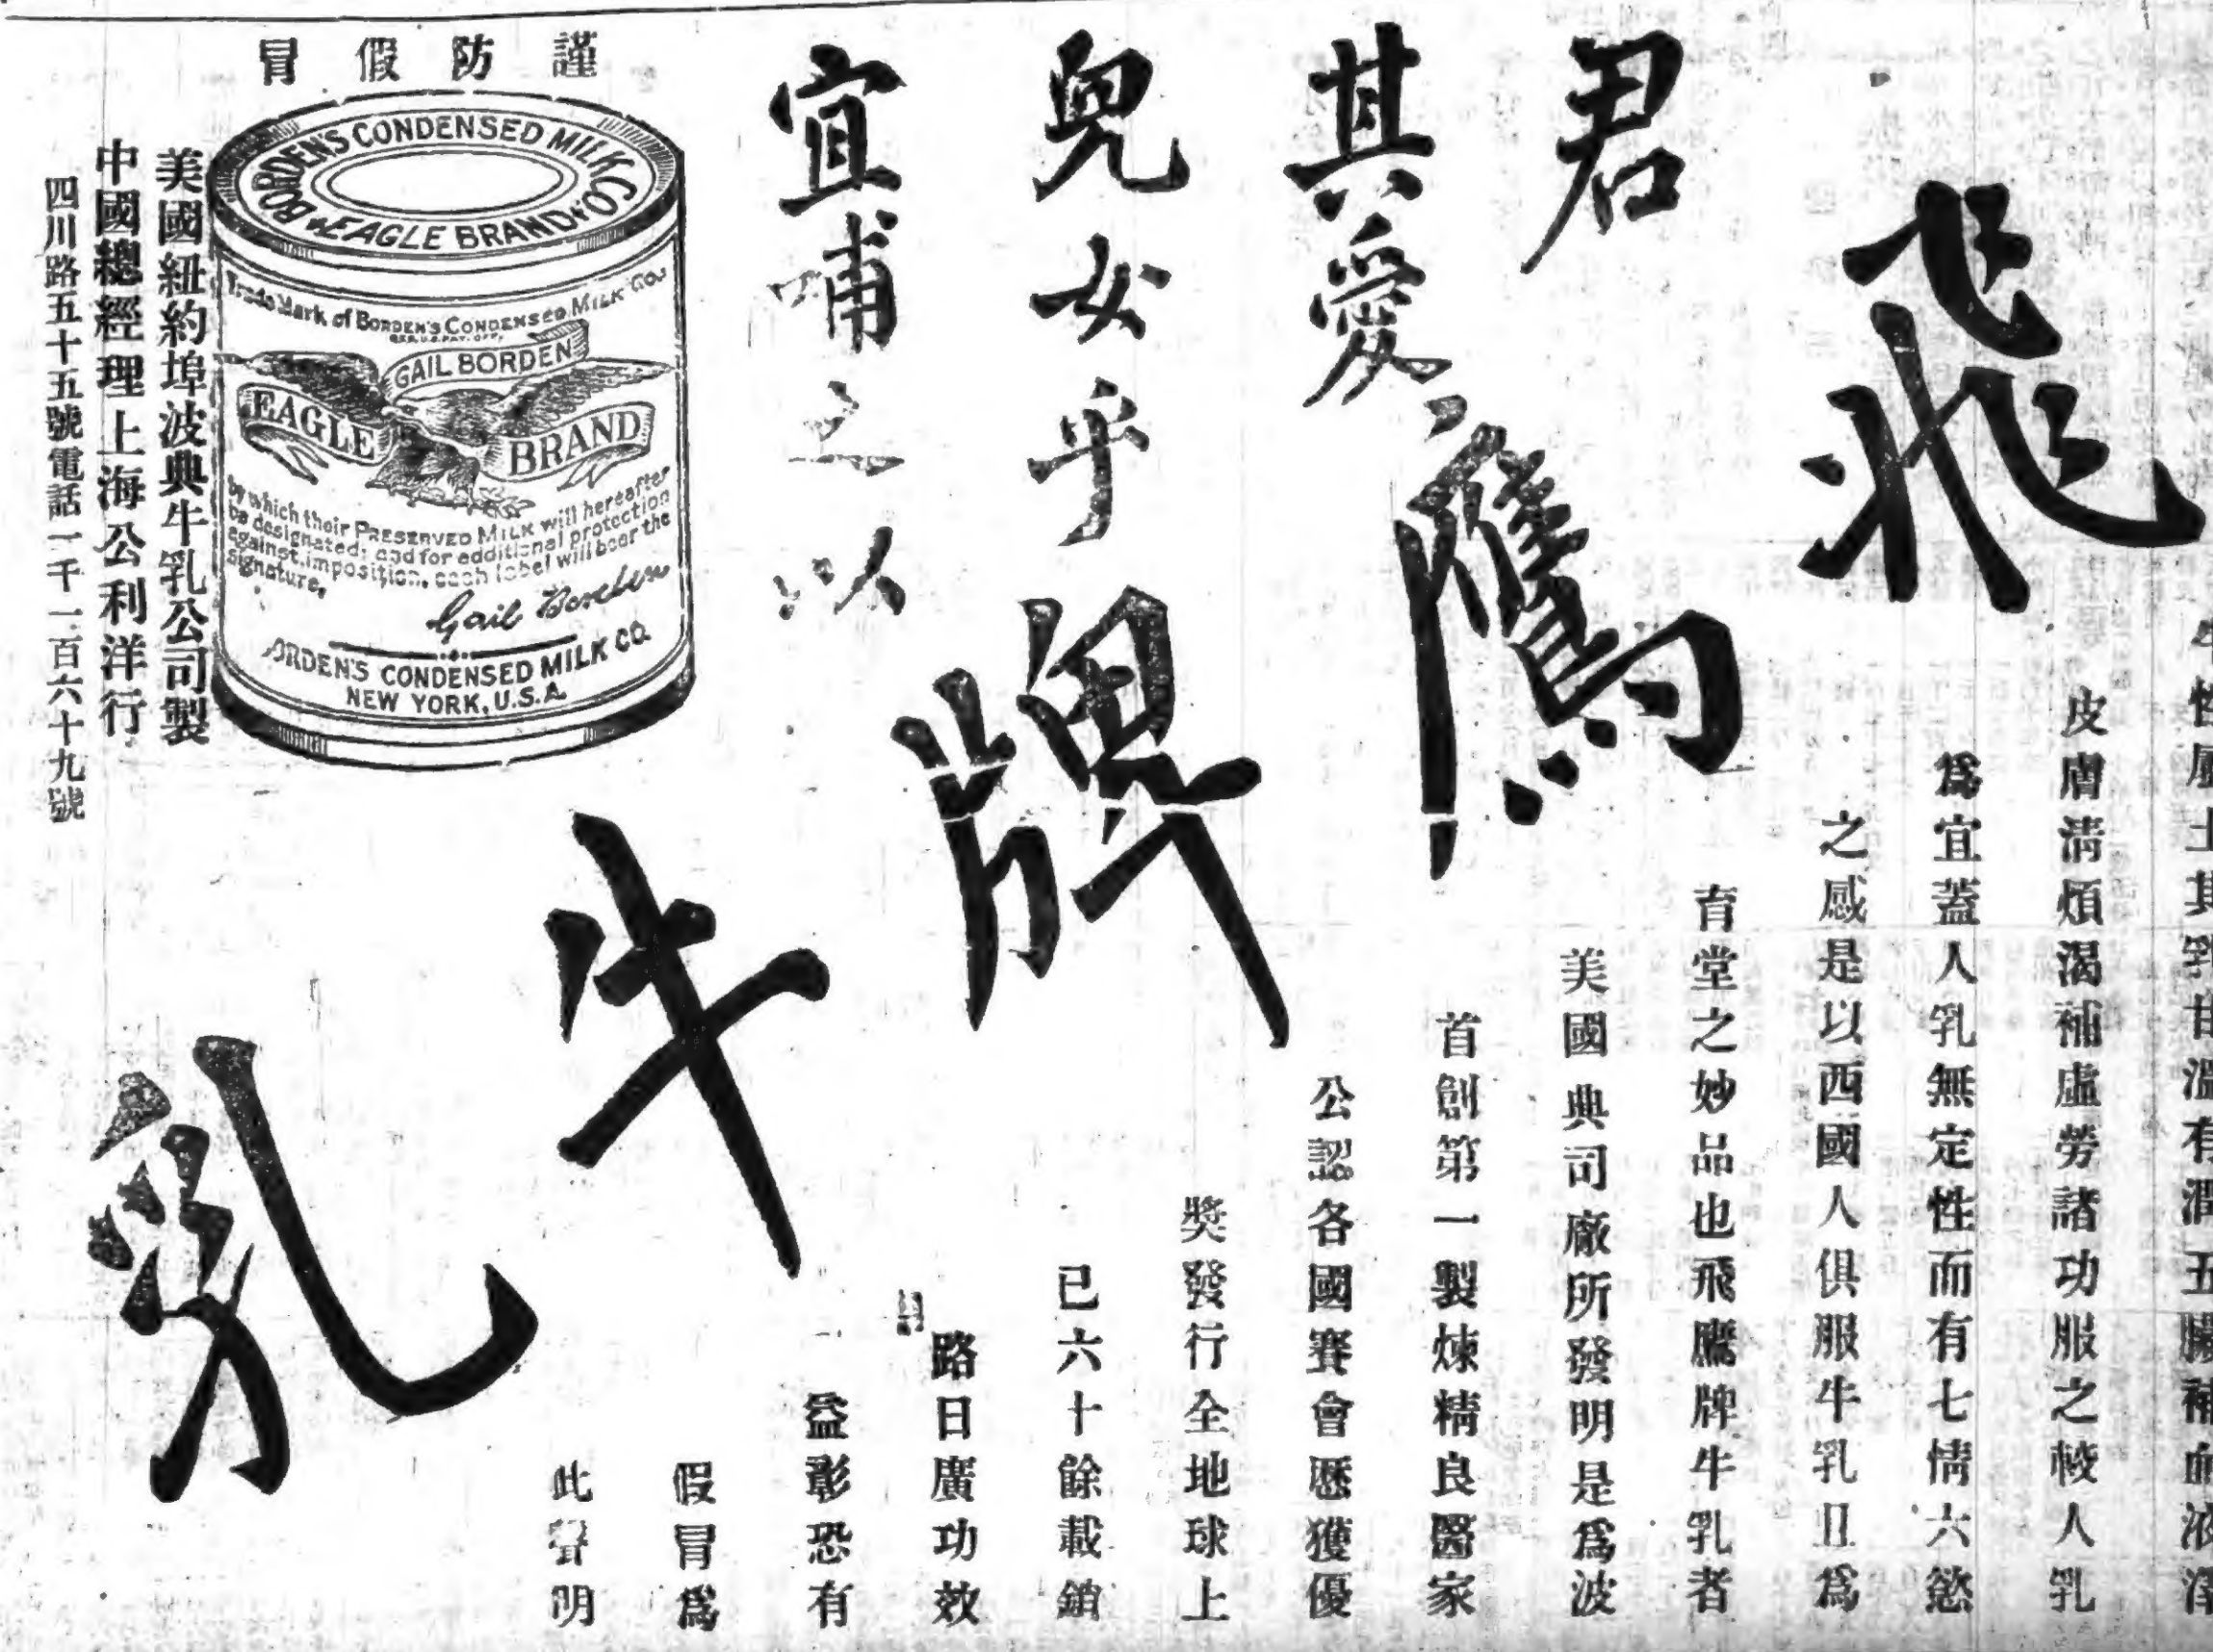 飛鷹牌牛乳
君
其愛
兒女乎
宜哺之以
牛性屬土其乳甘溫有潤五臟補血液澤
皮膚清煩渴補虛勞諸功服之較人乳
爲宜蓋人乳無定性而有七情六慾
之感是以西國人俱服牛乳且爲
育堂之妙品也飛鷹牌牛乳者
美國典司廠所發明是爲波
首創第一製煉精良醫家
公認各國賽會歷獲優
獎發行全地球上
已六十餘載銷
路日廣功效
益彰恐有
假冒爲
此聲明
謹防假冒
BORDEN'S CONDENSED MILK CO.
EAGLE BRAND
Trade Mark of BORDEN'S CONDENSED MILK Co.
REG. U.S. PAT. OFF.
GAIL BORDEN
EAGLE BRAND
by which their PRESERVED MILK will hereafter
be designated; and for additional protection
against imposition, each label will bear the
signature,
Gail Borden
ORDEN'S CONDENSED MILK CO.
NEW YORK, U.S.A.
美國紐約埠波典牛乳公司製
中國總經理上海公利洋行
四川路五十五號電話一千一百六十九號